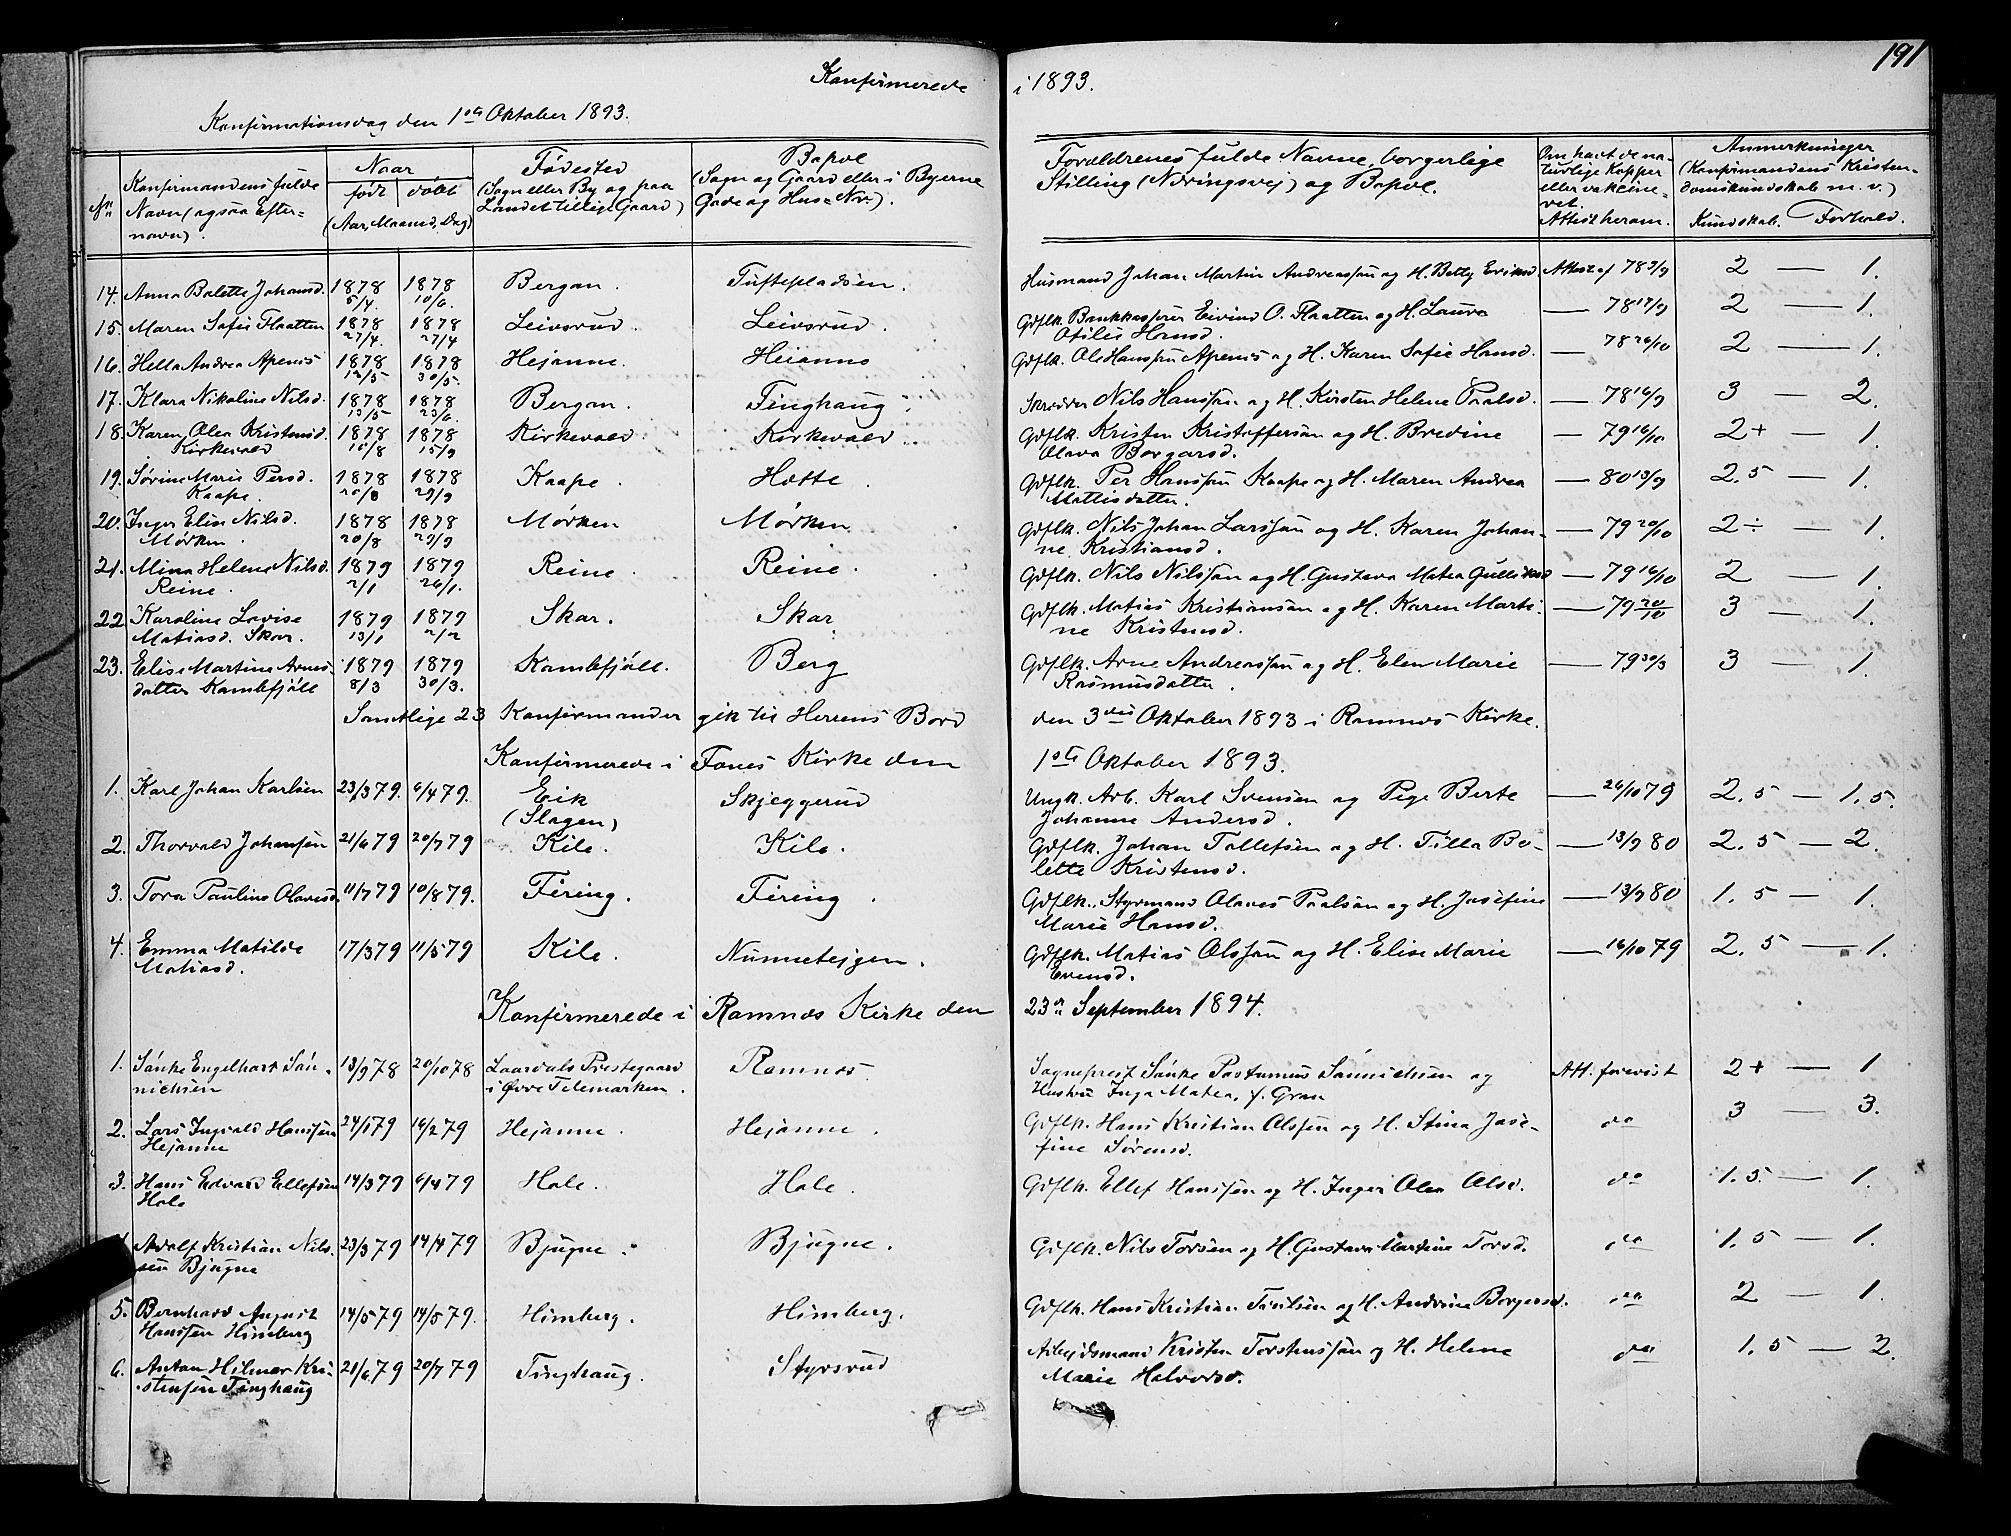 191
Konfirmerede i 1893.
Konfirmationsdag den 1ste Oktober 1893.
No.
Konfirmandens fulde Navn (ogsaa Efternavn).
Naar
født døbt
(Aar, Maaned, Dag)
Fødested
(Sogn eller By og paa Landet tillige Gaard)
Bopæl
(Sogn og Gaard eller i Byerne Gade og Hus No.)
Forældrenes fulde Navne, borgerlige Stilling (Næringsvej) og Bopæl.
Om havt de naturlige Kopper eller vakcineret. Attest herom.
Anmerkninger
(Konfirmandens Kristendomskundskab m. v.)
Kundskab. Forhold.
14. Anna Bolette Johansd. 1878 5/4. 1878 10/6. Bergan. Tuftepladsen. Husmand Johan Martin Andreassøn og H. Betty Eriksd. Attest af 78 3/9 2 — 1.
15. Maren Sofie Flaatten 1878 27/4. 1878 27/4 Leivsrud. Leivsrud. Gdflk. Bankkasserer Eivind O. Flaatten og H. Laura
Otilie Hansd. — 78 17/9 2 — 1.
16. Hella Andrea Apenes 1878 12/5 1878 30/5. Hejanne. Heianne Gdflk. Ole Hanssøn Apenes og H. Karen Sofie Hansd. — 78 26/10 2 — 1.
17. Klara Nikoline Nilsd. 1878 13/5 1878 23/6. Bergan. Tinghaug. Skrædder Nils Hanssøn og H. Kirsten Helene Paalsd. — 78 16/9 3 — 2.
18. Karen Olea Kristensd. 1878 10/8 1878 15/9 Kirkevold. Kirkevold. Gdflk. Kristen Kristoffersøn og H. Bredine — 79 16/10 2+ — 1.
Kirkevold Olava Borgersd.
19. Sørine Marie Persd. 1878 20/8 1878 29/9 Kaape. Hotte. Gdflk. Per Hanssøn Kaape og H. Maren Andrea — 80 13/9 2.5 — 1.
Kaape. Mattisdatter.
20. Inger Elise Nilsd. 1878 20/8 1878 29/9 Mørken Mørken Gdflk. Nils Johan Larssøn og H. Karen Johan- — 79 20/10 2÷ — 1.
Mørken. ne Kristiansd.
21. Mina Helene Nilsd. 1879 2/1 1879 26/1. Reine. Reine. Gdflk. Nils Nilssøn og H. Gustava Matea Gulliksd — 79 16/10 2 — 1.
Reine.
22 Karoline Lovise 1879 13/1 1879 2/2 Skar. Skar Gdflk. Matias Kristiansøn og H. Karen Marti- — 79 20/10 3 — 1.
Matiasd. Skar. ne Kristensd.
23. Elise Martine Arnes- 1879 8/3 1879 30/3. Kamfjöll. Berg Gdflk. Arne Andreassøn og H. Elen Marie — 79 30/3 3 — 1.
datter Kamfjöll Rasmusdatter.
Samtlige 23 Konfirmander gik til Herrens Bord den 3die Oktober 1893 i Ramnes Kirke.
Konfirmerede i Fones Kirke den 1ste Oktober 1893.
1. Karl Johan Karlsen 23/3 79. 6/4 79. Eik Skjeggerud Ungk. Arb. Karl Svensen og Pige Berte — 26/10 79 2.5 — 1.5.
(Slagen) Johanne Andersd.
2. Thorvald Johansen 21/6 79 20/7 79 Kile. Kile. Gdflk. Johan Tollefsen og H. Tilla Bo- — 13/9 80 2.5 — 2.
lette Kristensd.
3. Tora Pauline Olavesd. 11/7 79 10/8 79. Firing. Firing. Gdflk. Styrmand Olaves Paalsøn og H. Josefine — 13/9 80 1.5 — 1.
Marie Hansd.
4. Emma Matilde 17/3 79 11/5 79 Kile. Nunnetejgen. Gdflk. Matias Olssøn og H. Elise Marie — 16/10 79 2.5 — 1.
Matiasd. Evensd.
Konfirmerede i Ramnes Kirke den 23de September 1894.
1. Sönke Engelhart Sön- 13/9 78 20/10 78 Laardals Prestegaard Ramnes Sogneprest Sönke Postumus Sönnichsen og Att. forevist 2+ — 1
nichsen i Øvre Telemarken. Hustru Inga Matea, f. Gran
2. Lars Ingvald Hanssøn 24/1 79 16/2 79 Hejanne. Hejanne. Gdflk. Hans Kristian Olssøn og H. Stina Jose- do 3 — 3.
Hejanne fine Sörensd.
3. Hans Edvard Ellefsøn 14/3 79 6/4 79 Hole. Hole. Gdflk. Ellef Hanssøn og H. Inger Olea Olsd. do 1.5 — 1.
Hole
Adolf Kristian Nils- 23/3 79 14/4 79 Bjugne. Bjugne. Gdflk. Nils Torsen og H. Gustava Martine Torsd. do 1.5 — 1.
sen Bjugne
5. Bernhard August 14/5 79 14/5 79. Himberg. Himberg. Gdflk. Hans Kristian Trulsen og H. Andrine Borgersd. do 2 — 1.
Hanssen Himberg
6. Anton Hilmar Kri- 21/6 79 20/7 79 Tinghaug. Styrsrud Arbejdsmand Kristen Torstenssøn og H. Helene do 1.5 — 2.
stensen Tinghaug Marie Halvorsd.